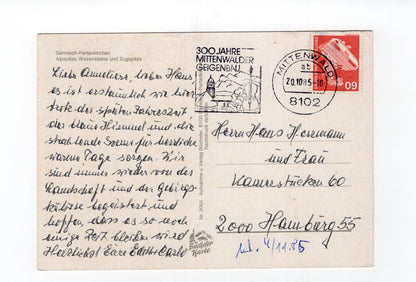 Garmisch-Partenkirchen
Alpspitze, Waxensteine und Zugspitze
300 JAHRE
MITTENWALDER
GEIGENBAU
MITTENWALD
ab
20.10.85-10
8102
60
Liebe Anneliese, lieber Hans,
es ist erstaunlich wie hier
trotz der späten Jahreszeit
der blaue Himmel und die
strahlende Sonne für herrliche
warme Tage sorgen. Wir
sind immer wieder von der
Landschaft und der Gebirgs-
kulisse begeistert und
hoffen, dass es so noch
einige Zeit bleiben wird
Herzlichst Eure Edith Carlo
Herrn Hans Herrmann
und Frau
Kamerstücken 60
2000 Hamburg 55
4/11.85
Nr. 3064 Aufnahme u. Verlag
Karte